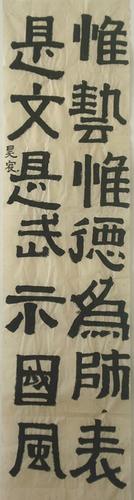 惟藝惟德為師表
是文是武示國風
昊寇